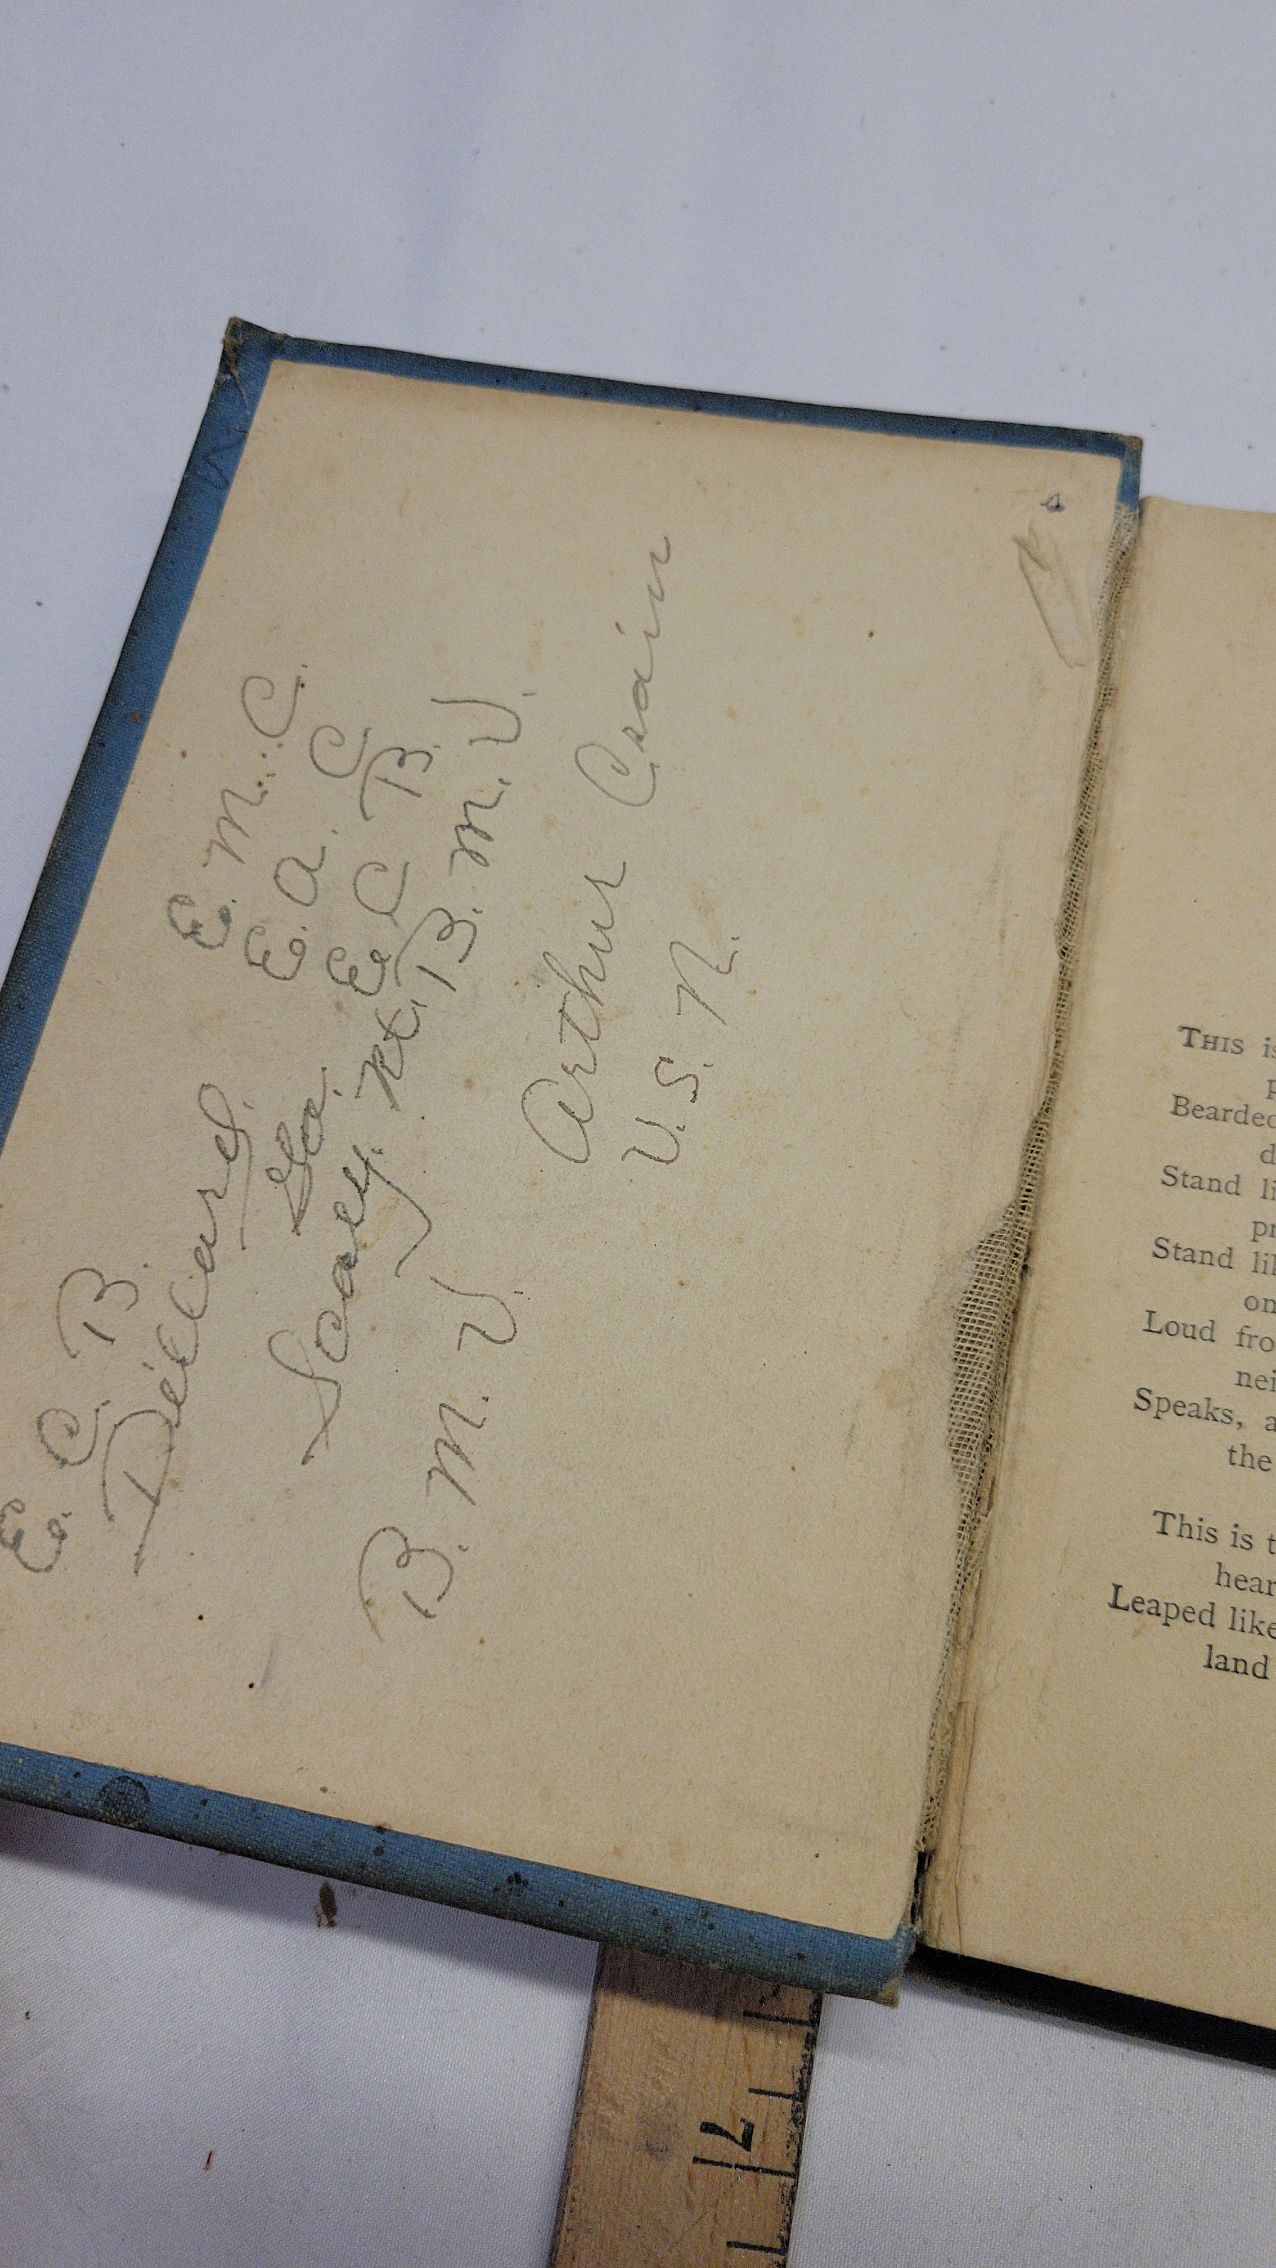 E. C. B.
Dillard,
Ga.
Scaly. N.C.
B. M. V.
E. M. C.
E. A. C.
E. C. B.
B. M. V.
Arthur Crain
U. S. N.
THIS is
p
Bearded
d
Stand li
pr
Stand lik
on
Loud fro
nei
Speaks, a
the
This is t
hear
Leaped like
land
7